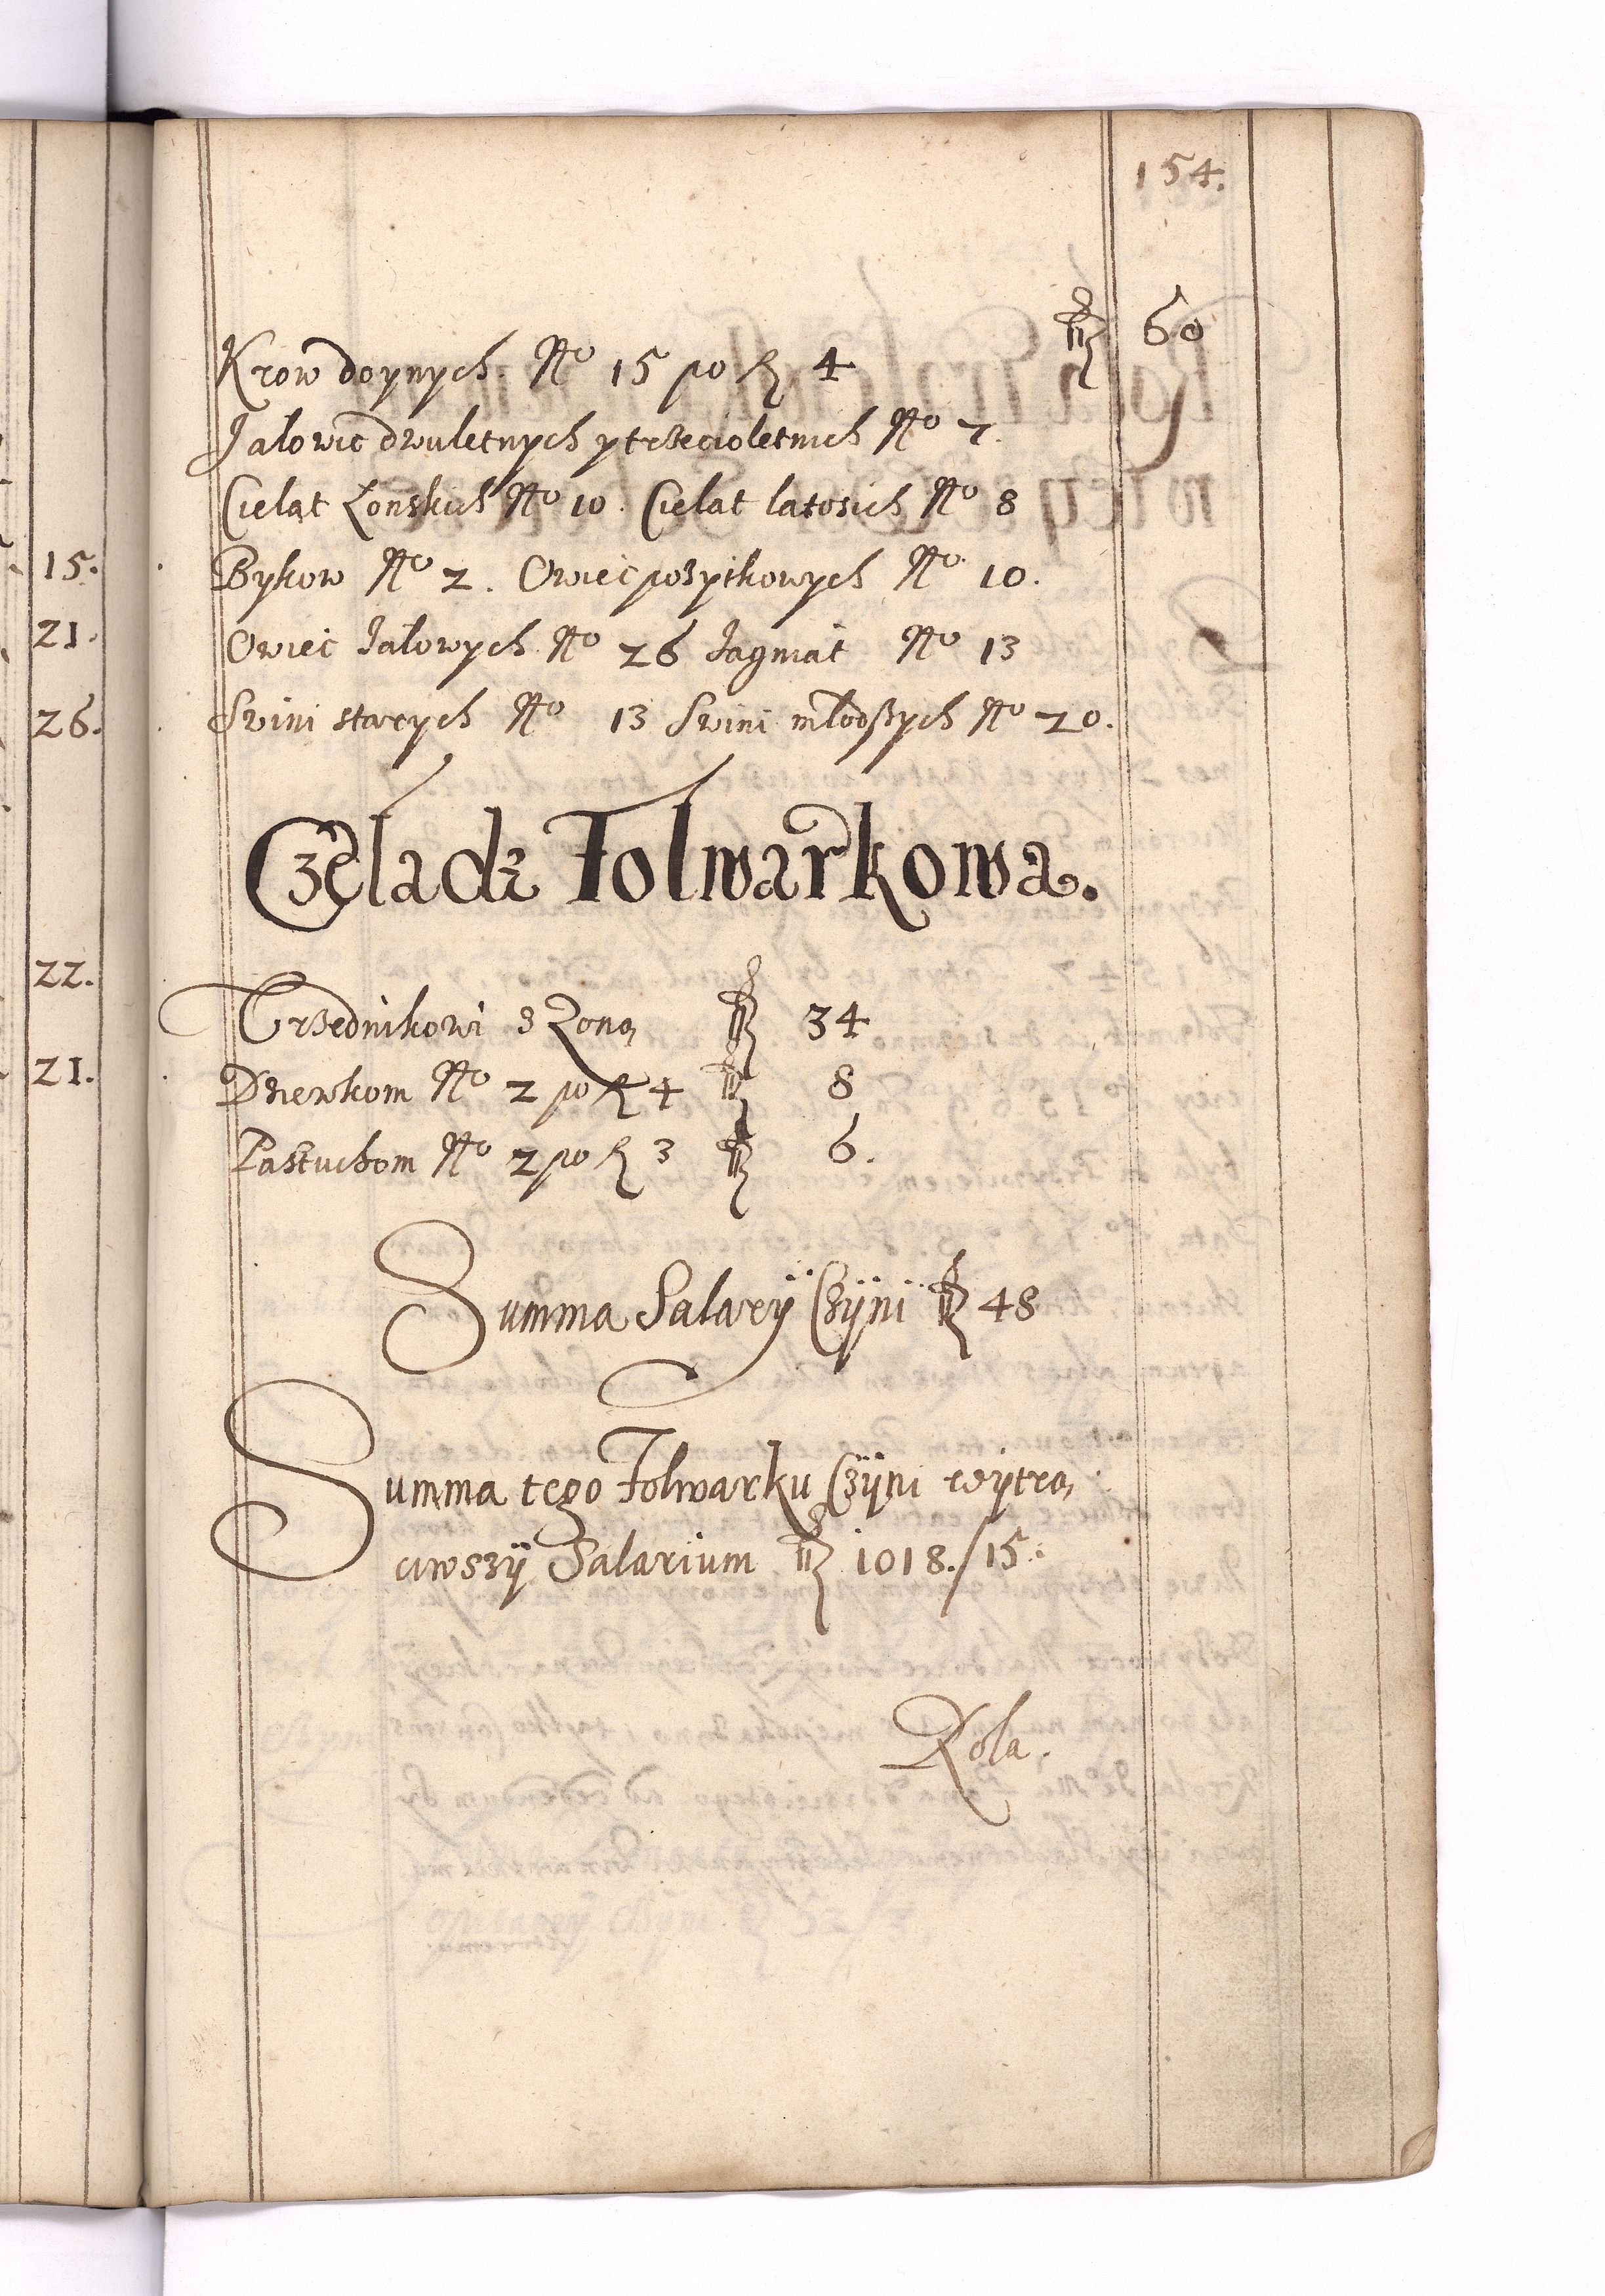 154.
Krow doynych No 15 po fl 4 fl 60
Jalowic dwuletnych y trzecioletnich No 7.
Cieląt Łonskich No 10. Cielat latosich No 8
Bykow No 2. Owiec pożytkowych No 10.
Owiec Jałowych No 26 Jagniat No 13
Swini starych No 13 Swini młodszych No 20.
Czeladz Folwarkowa.
Vrzednikowi z Zoną fl 34
Dziewkom No 2 po fl 4 fl 8
Pastuchom No 2 po fl 3 fl 6.
Summa Salarÿ Czÿni fl 48
Summa tego Folwarku Czÿni wÿtrą
ciwszÿ Salarium fl 1018./15.
Rola.
15.
21.
26.
22.
21.